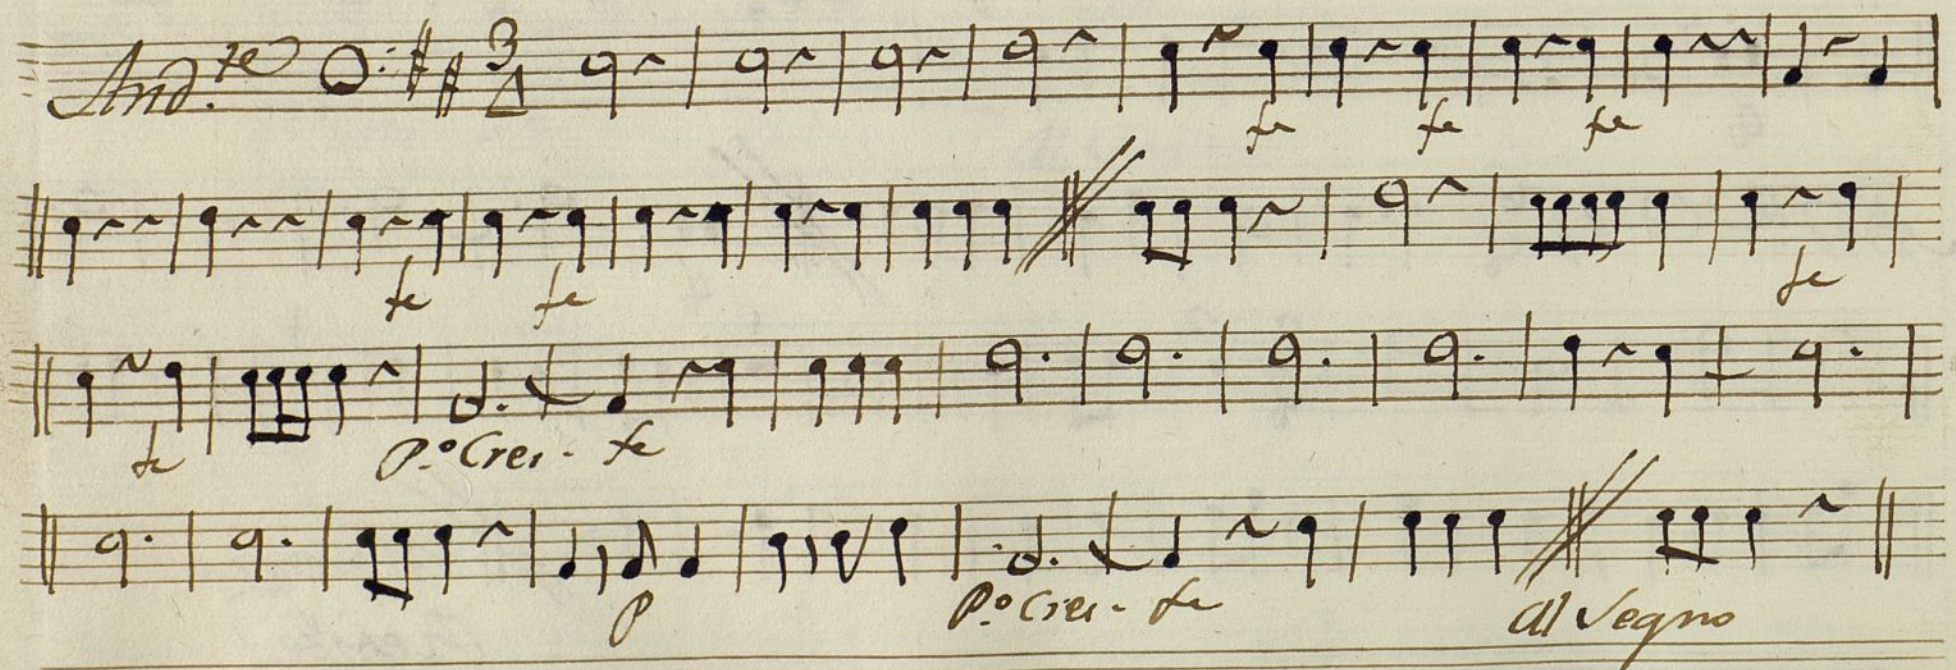 And.te 3 4
fe fe fe
fe fe fe
fe P.o Cres- fe
P P.o Cres- fe al Segno